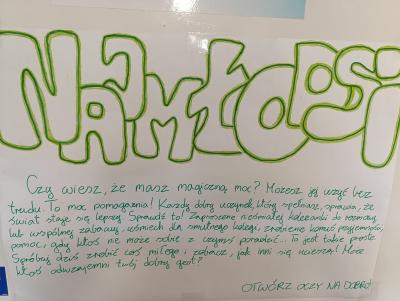 NAJMŁODSI
Czy wiesz, że masz magiczną moc? Możesz jej użyć bez
trudu. To moc pomagania! Każdy dobry uczynek, który spełniasz, sprawia, że
świat staje się lepszy. Sprawdź to! Zaproszenie nieśmiałej koleżanki do rozmowy
lub wspólnej zabawy, uśmiech dla smutnego kolegi, zrobienie komuś przyjemności,
pomoc, gdy ktoś nie może sobie z czymś poradzić... To jest takie proste.
Spróbuj dziś zrobić coś miłego i zobacz, jak inni się ucieszą! Może
ktoś odwzajemni twój dobry gest?
OTWÓRZ OCZY NA DOBRO